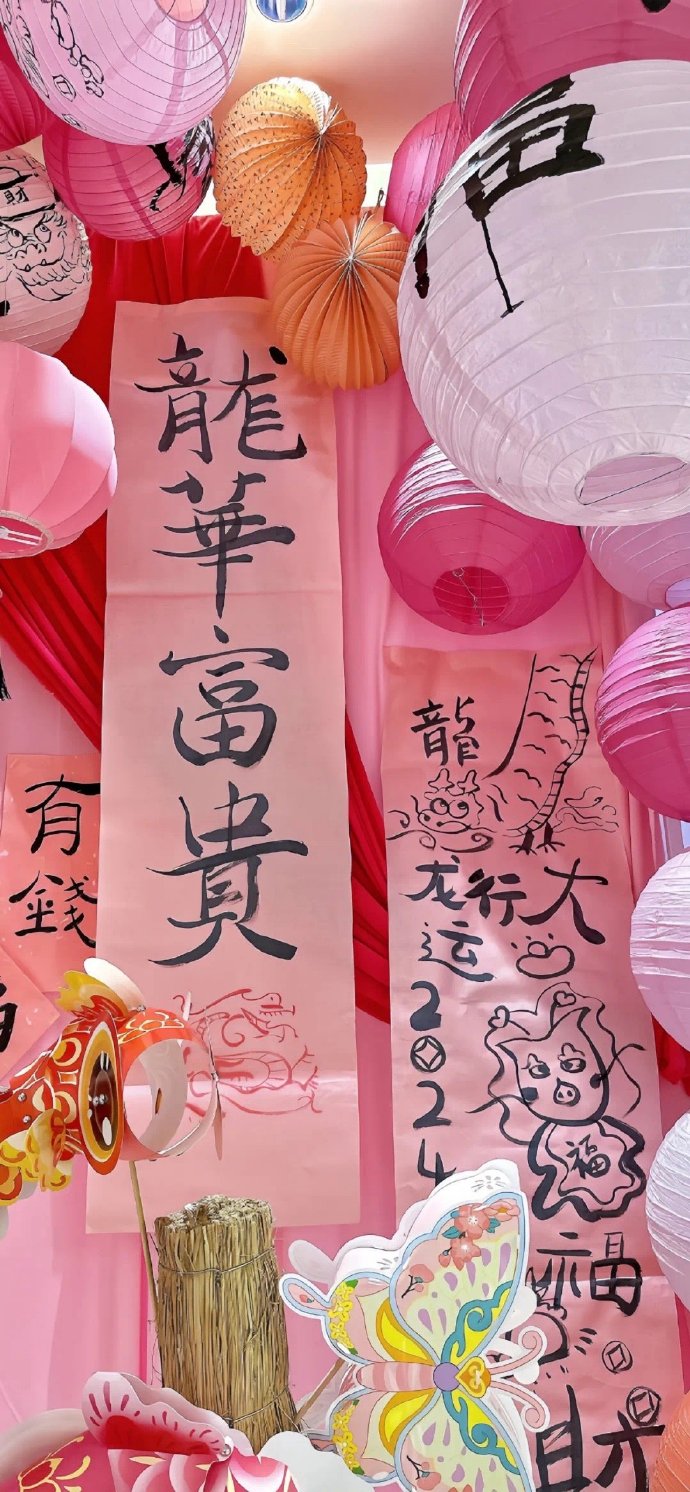 龍華富貴
有錢
龍
龙行大
运
2024
福
福
財
財